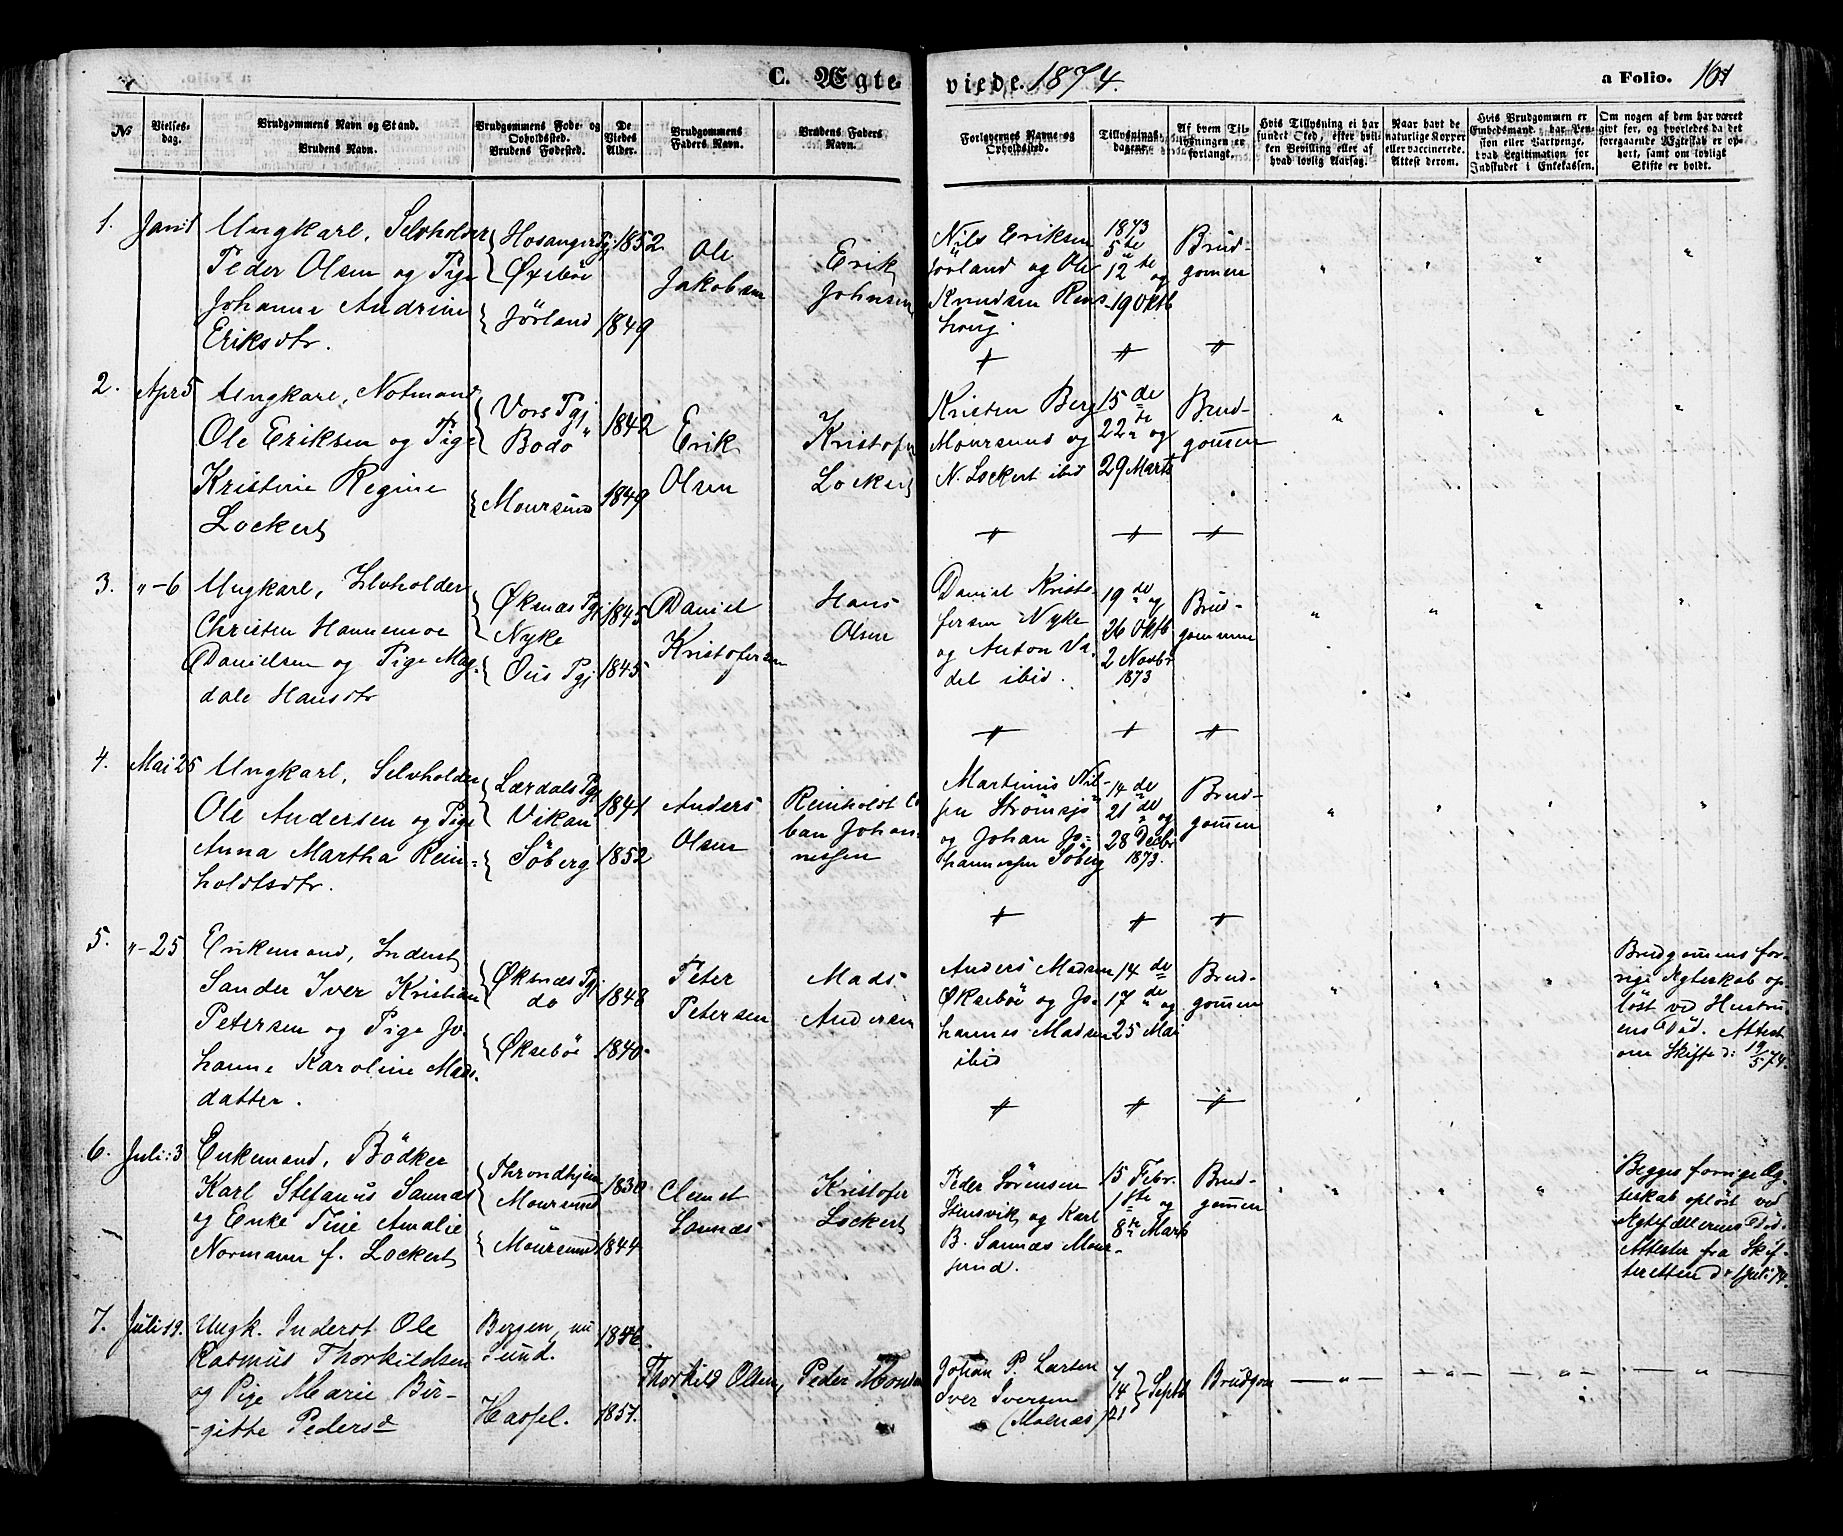 C. Ægteviede. 1874. a Folio. 161
№
Vielsesdag.
Brudgommens Navn og Stand.
Brudens Navn.
Brudgommens Føde- og
Opholdssted.
Brudens Fødested.
De
Viedes
Alder.
Brudgommens
Faders Navn.
Brudens Faders
Navn.
Forlovernes Navne og
Opholdssted.
Tillysnings-
dagene.
Af hvem Til-
lysningen er
forlangt.
Hvis Tillysning ei har
fundet Sted, efter hvil-
ken Bevilling eller af
hvad lovlig Aarsag.
Naar havt de
naturlige Kopper
eller vaccinerede.
Attest derom.
Hvis Brudgommen er
Embedsmand, har Pen-
sion eller Vartpenge,
hvad Legitimation for
Indskudet i Enkekassen.
Om nogen af dem har været
gift før, og hvorledes da det
foregaaende Ægteskab er op-
hørt, samt om lovligt
Skifte er holdt.
1. Jan: 1
Ungkarl, Selvholder
Peder Olsen og Pige
Johanne Andrine
Eriksdtr.
Hosanger Pgj
Øxebøe
Jörland
1852
1849
Ole
Jakobsen
Erik
Johnsen
Nils Eriksen
Jörland og Ole
Knudsen Rens-
houg.
1873
5te
12te og
19 Oktb
Brud-
gomen
2. Apr 5
Ungkarl, Notmand
Ole Eriksen og Pige
Kristine Regine
Lockert
Vors Pgj
Bodö
Moursund
1842
1849
Erik
Olsen
Kristofer
Lockert
Kristen Berg
Moursund og
N. Lockert ibid
15de
22de og
29 Marts
Brud-
gomen
3. " - 6
Ungkarl, Selvholder
Christen Hannemoe
Danielsen og Pige Mag-
dale Hansdtr
Øksnæs Pgj
Nyke
Ous Pgj
1845
1845
Daniel
Kristofersen
Hans
Olsen
Daniel Kristo-
fersen Nyke
og Anton Va-
del ibid.
19de og
26 Oktb
2 Novbr
1873
Brud-
gommen
4. Mai 25
Ungkarl, Selvholder
Ole Andersen og Pige
Anna Martha Rein-
holdtsdtr.
Lærdals Pgj
Vikan
Söberg
1841
1852
Anders
Olsen
Reinholdt Co
ban Johan-
nessen
Martinus Nil-
sen Strömsjö
og Johan Jo-
hannessen Söberg
14de
21de og
28 Decbr
1873.
Brud-
gomen
5. " - 25
Enkemand, Inderst
Sander Iver Kristian
Petersen og Pige Jo-
hanne Karoline Mads-
datter.
Øksnæs Pgj
do
Øksebøe
1848
1840
Peter
Petersen
Mads
Andersen
Anders Madsen
Øksebøe og Jo-
hannes Madsen
ibid
14de
17de og
25 Mai
Brud-
gomen
Brudgomens for-
rige Ægteskab op-
löst ved Hustru-
ens Död. Attest
om Skifte d: 19/5 74.
6. Juli: 3
Enkemand, Bödker
Karl Stefanus Sannæs
og Enke Tine Amalie
Normann f. Lockert
Throndhjem
Moursund
Moursund
1830
1844
Clemet
Sannæs
Kristofer
Lockert
Peder Sörensen
Stensvik og Karl
B. Sannæs Mour-
sund.
15 Febr.
1ste og
8de Marts
Brud-
gomen
Begges forrige Æg-
teskab oplöst ved
Ægtefællernes Död.
Attester fra Skif-
teretten d: 1 Juli 74.
7. Juli 19.
Ungk. Inderst Ole
Rasmus Thorkildsen
og Pige Marie Bir-
gitte Pedersd
Bergen, nu
Sund.
Hassel.
1846.
1857.
Thorkild Olsen,
Peder Monsen
Johan P. Larsen
Iver Iversen
(Malnæs)
7
14
21
Septb
Brudgom